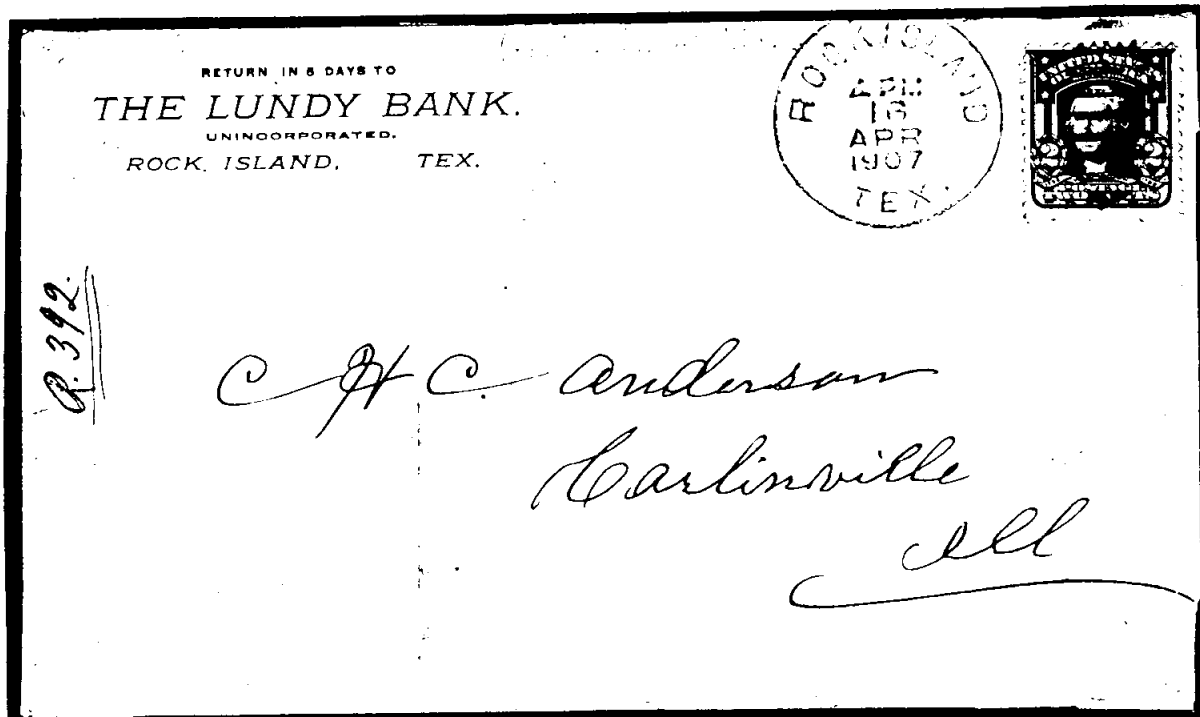 RETURN IN 5 DAYS TO
THE LUNDY BANK.
UNINCORPORATED.
ROCK ISLAND, TEX.
ROCK ISLAND
16
APR
1907
TEX.
2 2
392.
C H C. Anderson
Carlinville
Ill